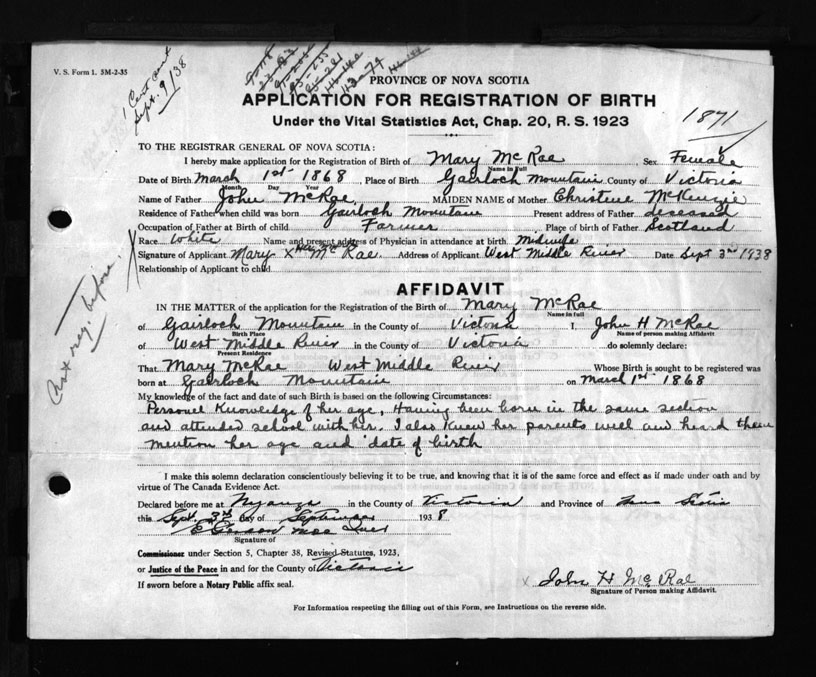 V. S. Form 1. 5M-2-35
1 Cert and
Sept. 9/38
PROVINCE OF NOVA SCOTIA
APPLICATION FOR REGISTRATION OF BIRTH
Under the Vital Statistics Act, Chap. 20, R. S. 1923
1871
TO THE REGISTRAR GENERAL OF NOVA SCOTIA:
I hereby make application for the Registration of Birth of Mary McRae Sex Female
Name in Full
Date of Birth March 1st 1868, Place of Birth Gairloch Mountain County of Victoria
Month Day Year
Name of Father John McRae MAIDEN NAME of Mother Christine McKenzie
Residence of Father when child was born Gairloch Mountain Present address of Father deceased
Occupation of Father at Birth of child Farmer Place of birth of Father Scotland
Race White Name and present address of Physician in attendance at birth Midwife
Signature of Applicant Mary X Her McRae Address of Applicant West Middle River Date Sept 3rd 1938
Relationship of Applicant to child
not reg. before. X
AFFIDAVIT
IN THE MATTER of the application for the Registration of the Birth of Mary McRae
Name in full
of Gairloch Mountain in the County of Victoria I, John H McRae
Birth Place Name of person making Affidavit
of West Middle River in the County of Victoria do solemnly declare:
Present Residence
That Mary McRae West Middle River Whose Birth is sought to be registered was
born at Gairloch Mountain on March 1st 1868
My knowledge of the fact and date of such Birth is based on the following Circumstances:
Personel Knowledge of her age, Having been born in the same section
and attended school with her. I also knew her parents well and heard them
mention her age and date of birth
I make this solemn declaration conscientiously believing it to be true, and knowing that it is of the same force and effect as if made under oath and by
virtue of The Canada Evidence Act.
Declared before me at Nyanza in the County of Victoria and Province of Nova Scotia
this Sept. 3rd day of September 1938
Signature of
Commissioner under Section 5, Chapter 38, Revised Statutes, 1923,
or Justice of the Peace in and for the County of Victoria
If sworn before a Notary Public affix seal.
X John H McRae
Signature of Person making Affidavit.
For Information respecting the filling out of this Form, see Instructions on the reverse side.